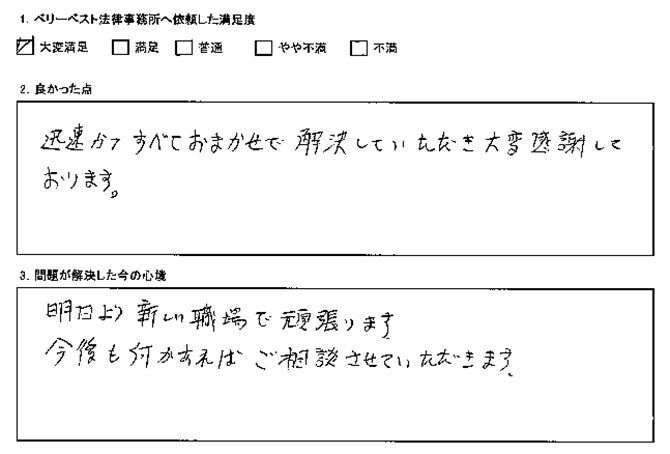 1. ベリーベスト法律事務所へ依頼した満足度
大変満足 満足 普通 やや不満 不満
2. 良かった点
迅速かつすべておまかせで解決していただき大変感謝して
おります。
3. 問題が解決した今の心境
明日より新しい職場で頑張ります
今後も何かあればご相談させていただきます。